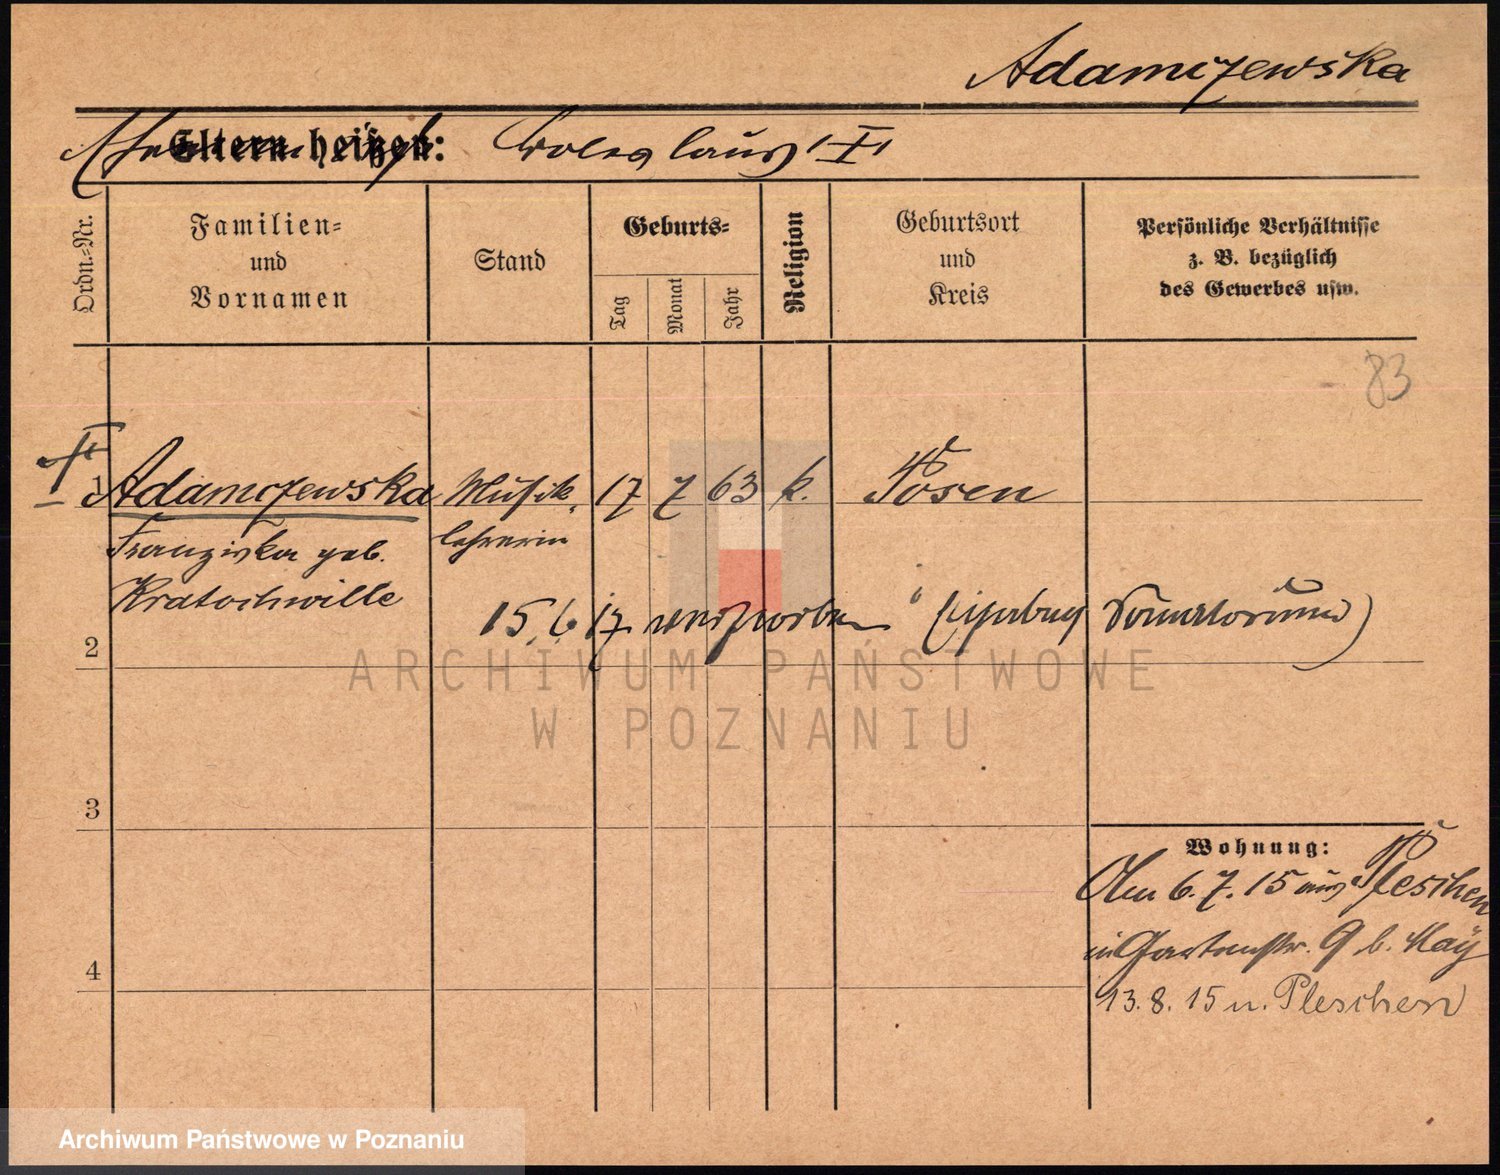 Adamczewska
Eltern heißen: Boleslaus I
Ordn.-Nr.
Familien-
und
Vornamen
Stand
Geburts-
Tag
Monat
Jahr
Religion
Geburtsort
und
Kreis
Persönliche Verhältnisse
z. B. bezüglich
des Gewerbes usw.
83
1 Adamczewska Musik 17 7 63 k. Posen
Franziska geb. lehrerin
Kratochwille
15.6.17 verzworben
Sanatorium)
2
3
4
Wohnung:
6.7.15 aus Pleschen
in Gartenstr. 9 b. May
13.8.15 n. Pleschen
ARCHIWUM PAŃSTWOWE
W POZNANIU
Archiwum Państwowe w Poznaniu